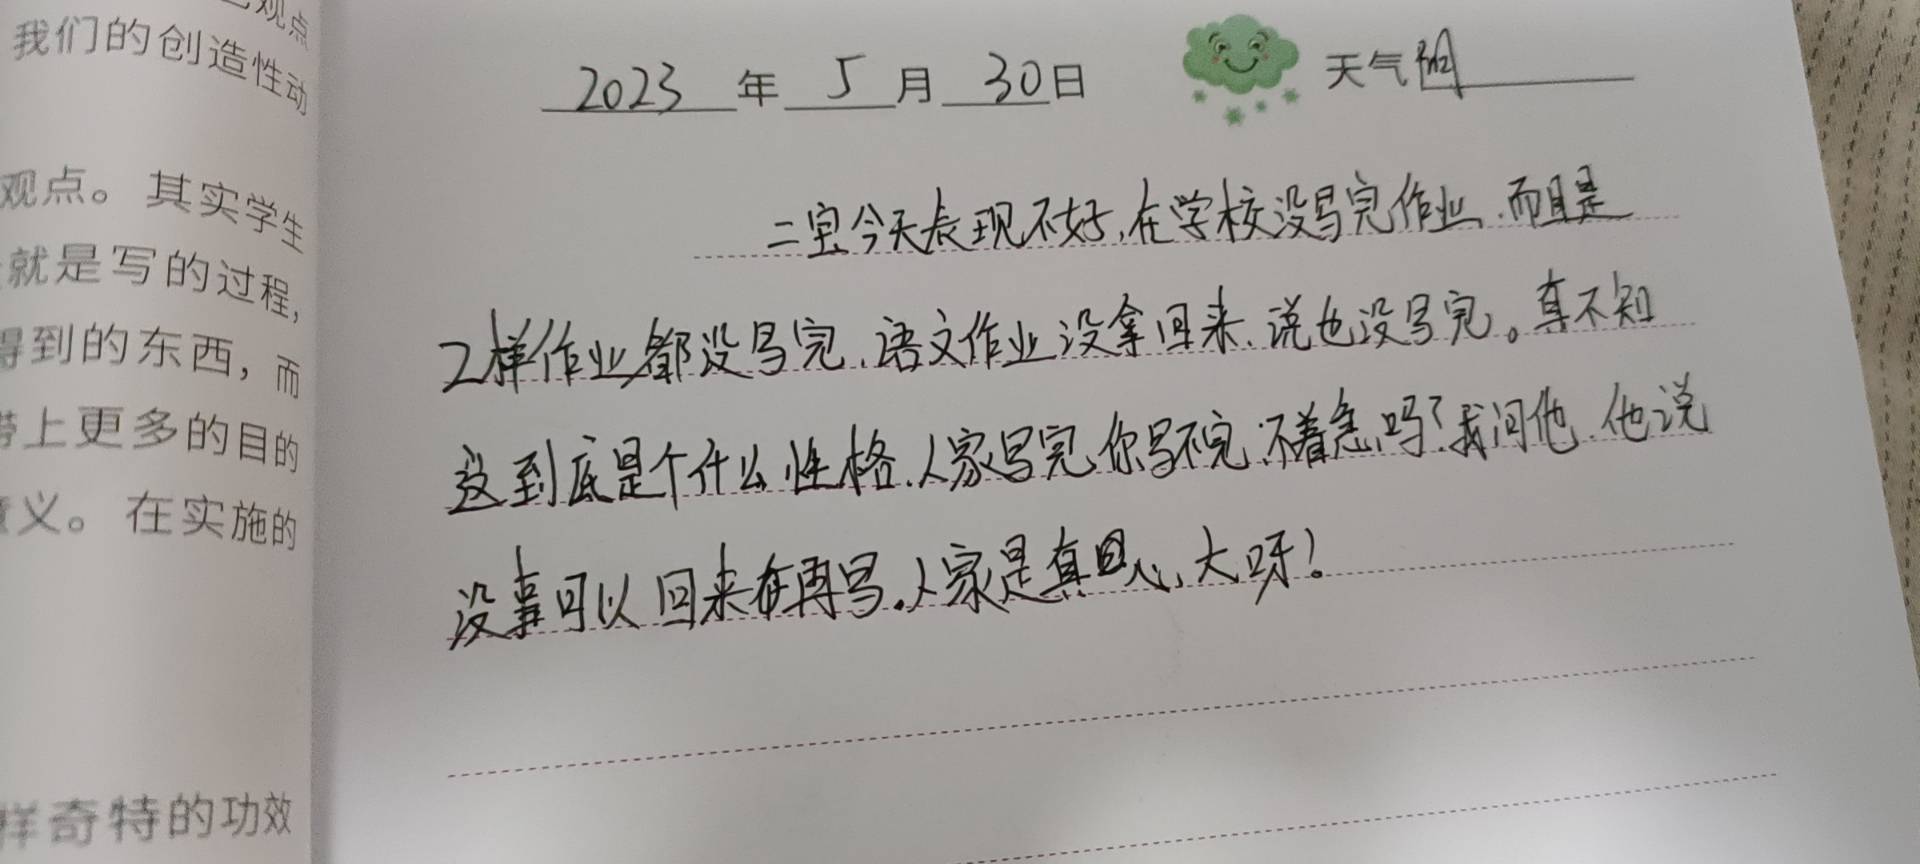 观点
我们的创造性动
观点。其实学生
就是写的过程,
得到的东西，而
带上更多的目的
意义。在实施的
样奇特的功效
2023年5月30日 天气
二宝今天表现不好,在学校没写完作业,而且是
2样作业都没写完,语文作业没拿回来,说也没写完。真不知
这到底是个什么性格,人家写完你写不完,不着急吗?我问他,他说
没事可以回来在再写,人家是真心大呀!